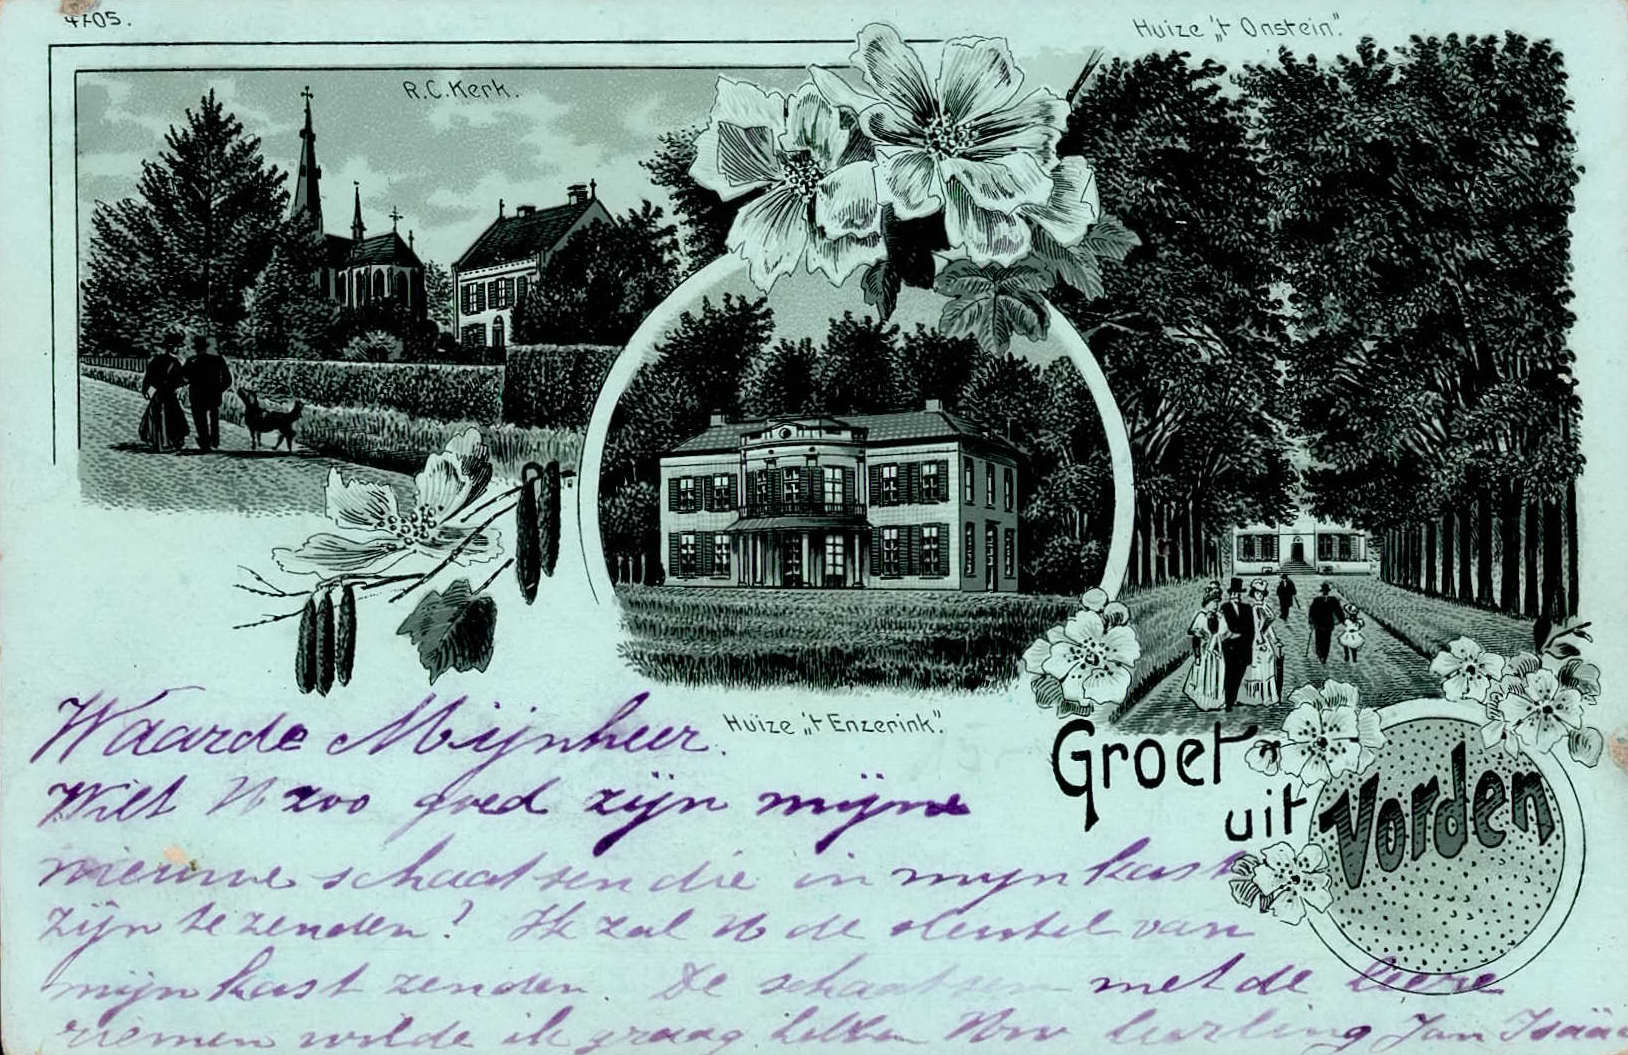 4705.
Huize „'t Onstein".
R.C. Kerk.
Huize „'t Enzerink".
Groet
uit Vorden
Waarde Mijnheer.
Wilt U zoo goed zijn mijne
nieuwe schaatsen die in mijn kast
zijn te zenden? Ik zal U de sleutel van
mijn kast zenden. De schaatsen met de leere
riemen wilde ik graag hebben Uw leerling Jan Isaäc